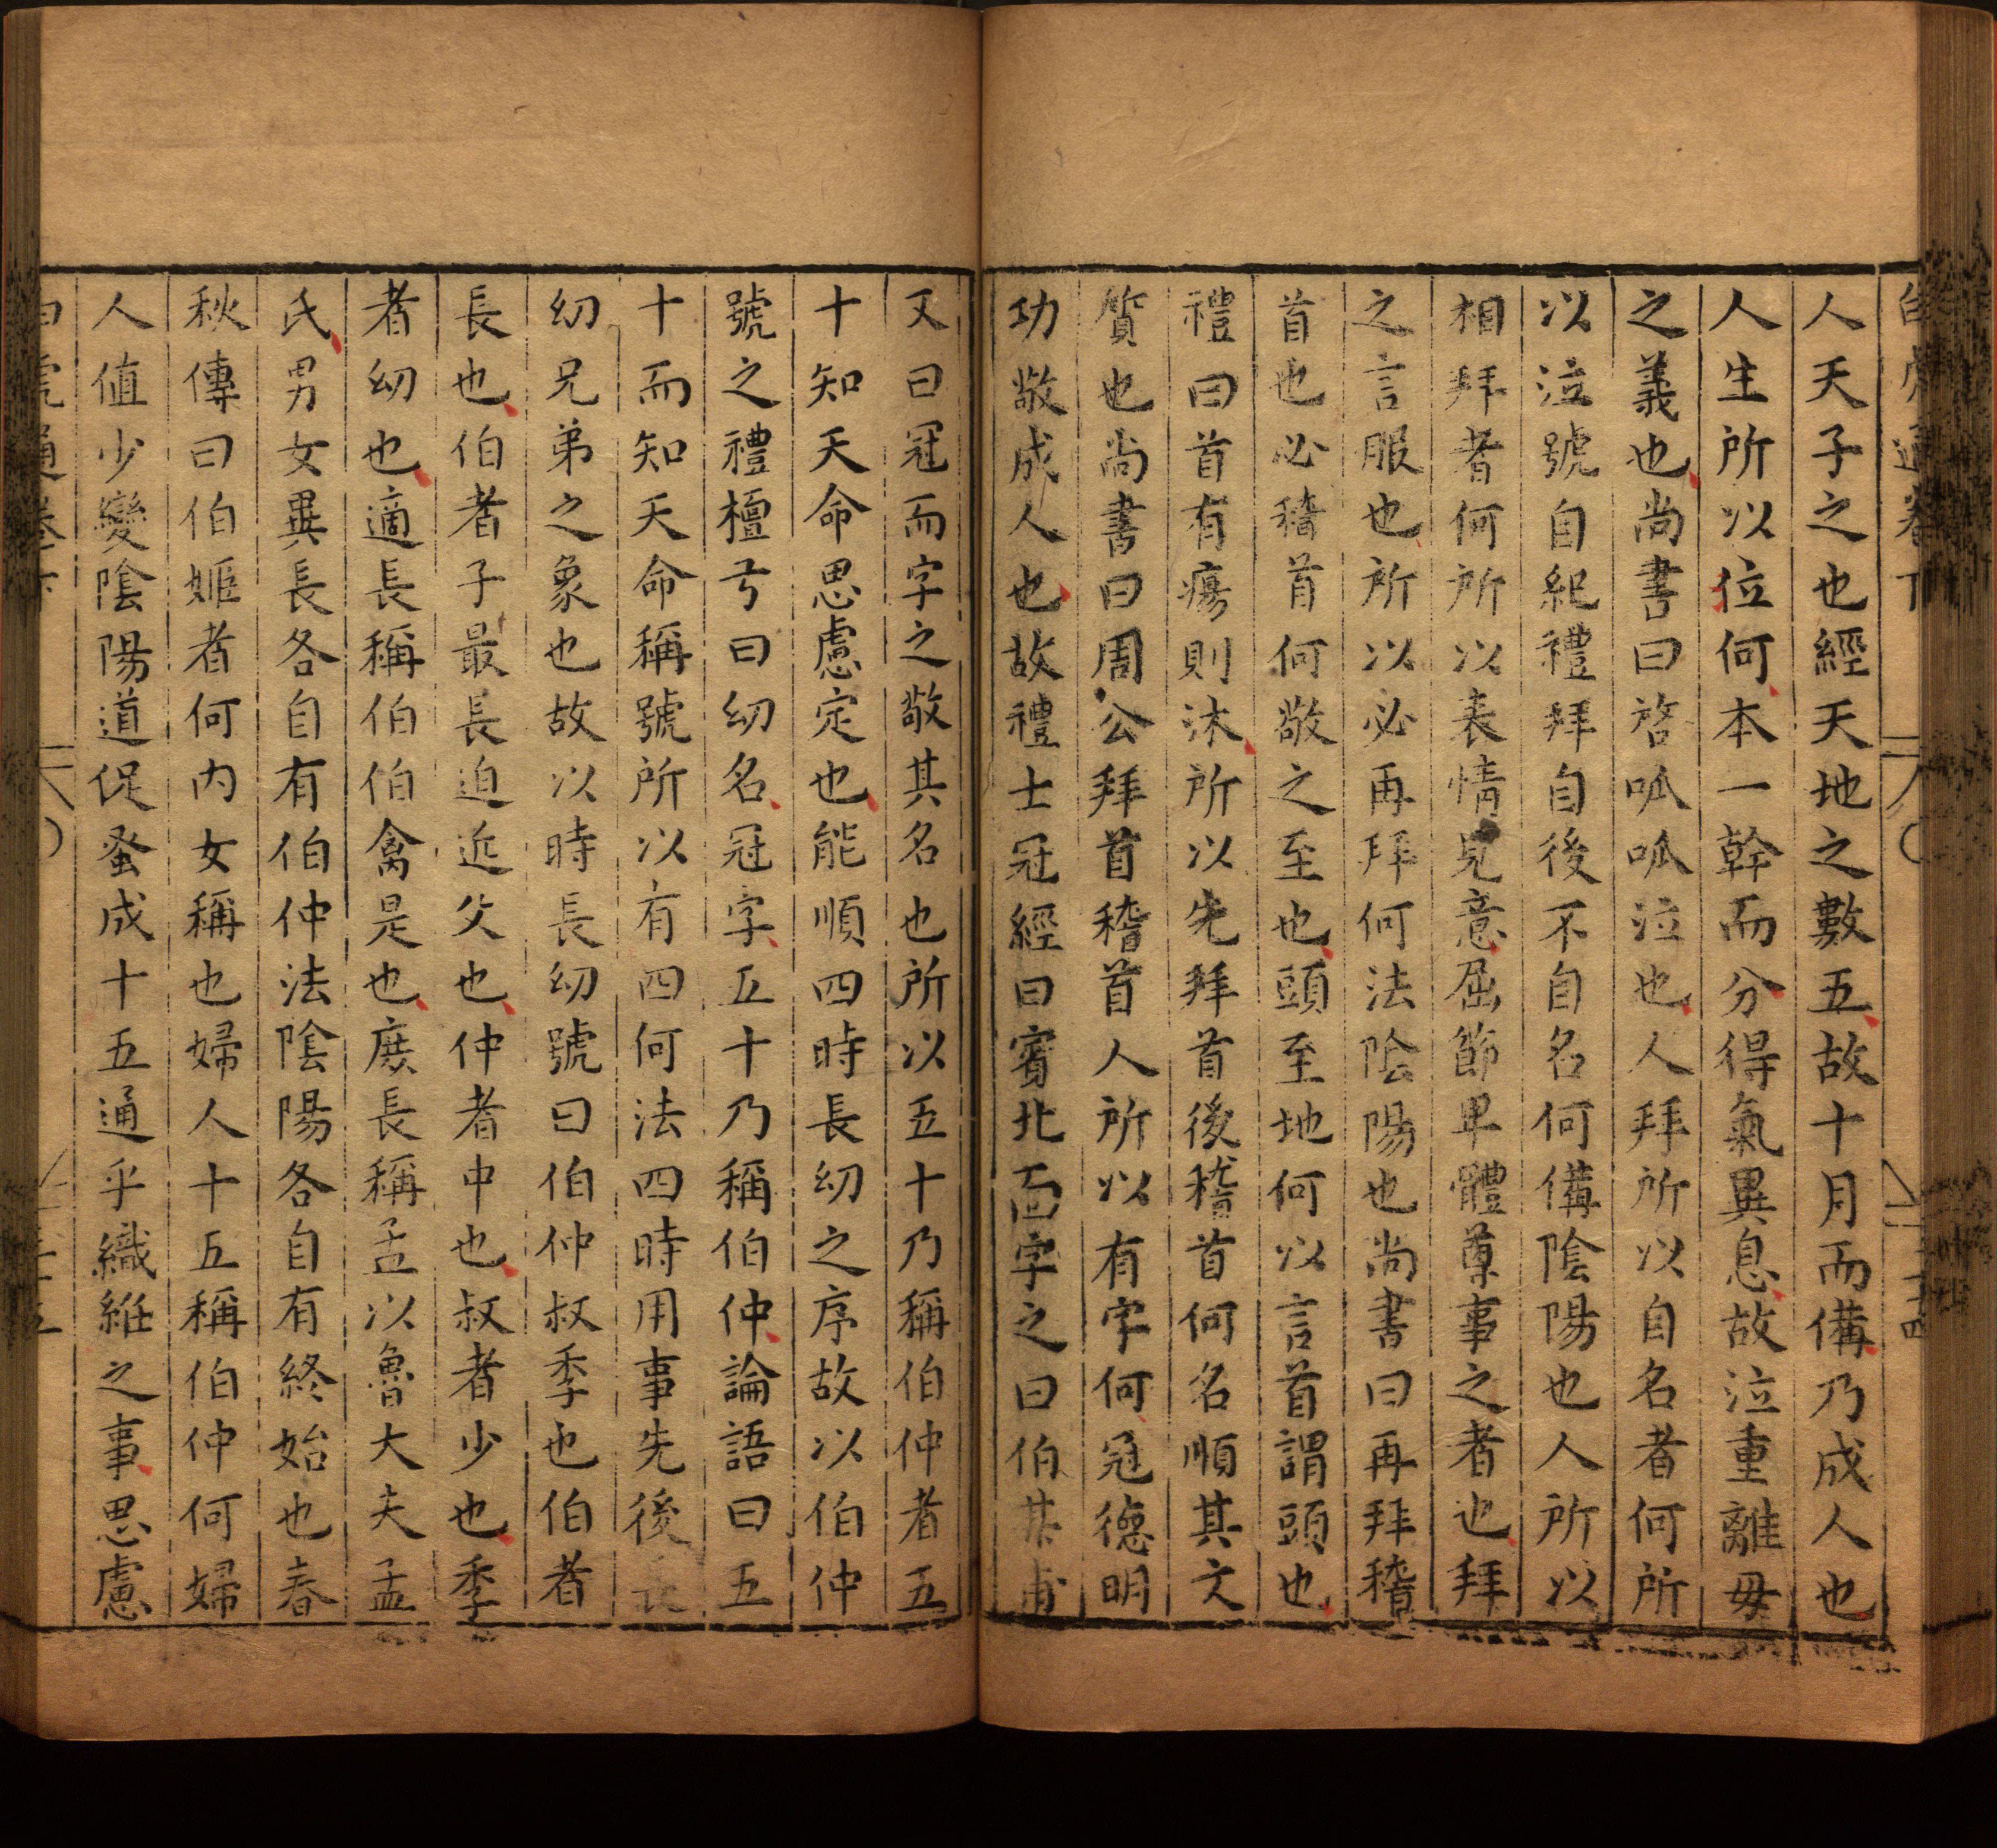 白虎通卷下
二十四
人天子之也經天地之數五故十月而備乃成人也
人生所以位何本一幹而分得氣異息故泣重離毋
之義也尚書曰啓呱呱泣也人拜所以自名者何所
以泣號自紀禮拜自後不自名何備陰陽也人所以
相拜者何所以表情見意屈節卑體尊事之者也拜
之言服也所以必再拜何法陰陽也尚書曰再拜稽
首也必稽首何敬之至也頭至地何以言首謂頭也
禮曰首有瘍則沐所以先拜首後稽首何名順其文
質也尚書曰周公拜首稽首人所以有字何冠德明
功敬成人也故禮士冠經曰賓北面字之曰伯某甫
又曰冠而字之敬其名也所以五十乃稱伯仲者五
十知天命思慮定也能順四時長幼之序故以伯仲
號之禮檀弓曰幼名冠字五十乃稱伯仲論語曰五
十而知天命稱號所以有四何法四時用事先後長
幼兄弟之象也故以時長幼號曰伯仲叔季也伯者
長也伯者子最長迫近父也仲者中也叔者少也季
者幼也適長稱伯伯禽是也庶長稱孟以魯大夫孟
氏男女異長各自有伯仲法陰陽各自有終始也春
秋傳曰伯姬者何内女稱也婦人十五稱伯仲何婦
人値少變陰陽道促蚤成十五通乎織絍之事思慮
白虎通卷下